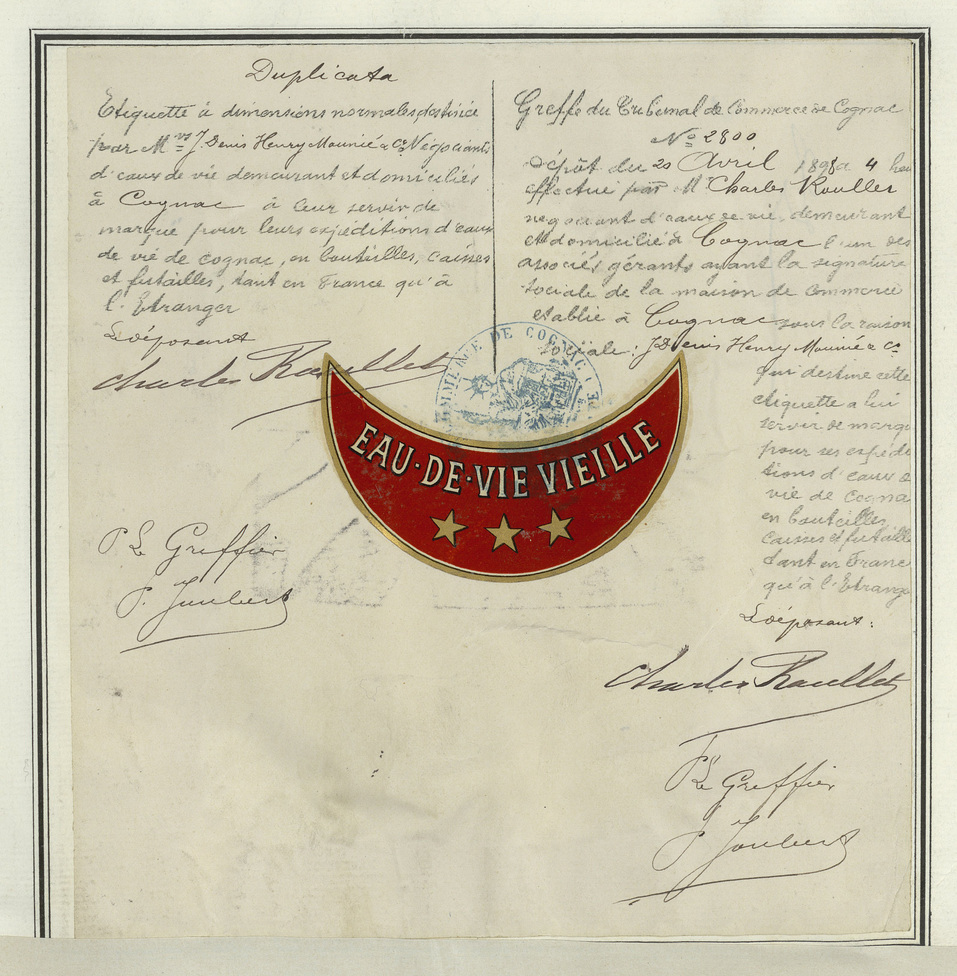 Duplicata
Etiquette à dimensions normales destinée
par M.rs J. Denis Henry Mounié & Co Négociants
d'eaux de vie demeurant et domiciliés
à Cognac à leur servir de
marque pour leurs expéditions d'eaux
de vie de cognac, en bouteilles, caisses
et futailles, tant en France qu'à
l'Etranger
Le déposant
Charles Roullet
P Le Greffier
P. Joubert
Greffe du Tribunal de Commerce de Cognac
No 2800
Dépôt du 20 Avril 1898 à 4 heu
effectué par M Charles Roullet
négociant d'eaux de vie, demeurant
et domicilié à Cognac l'un des
associés gérants ayant la signature
sociale de la maison de Commerce
établie à Cognac sous la raison
sociale: J. Denis Henry Mounié & Co
qui destine cette
étiquette à lui
servir de marqu
pour ses expédi
tions d'eaux d
vie de Cogna
en bouteilles
caisses et futaille
tant en Franc
qu'à l'Etrange
Le déposant:
Charles Roullet
P Le Greffier
P Joubert
DE COGNAC
EAU·DE·VIE VIEILLE